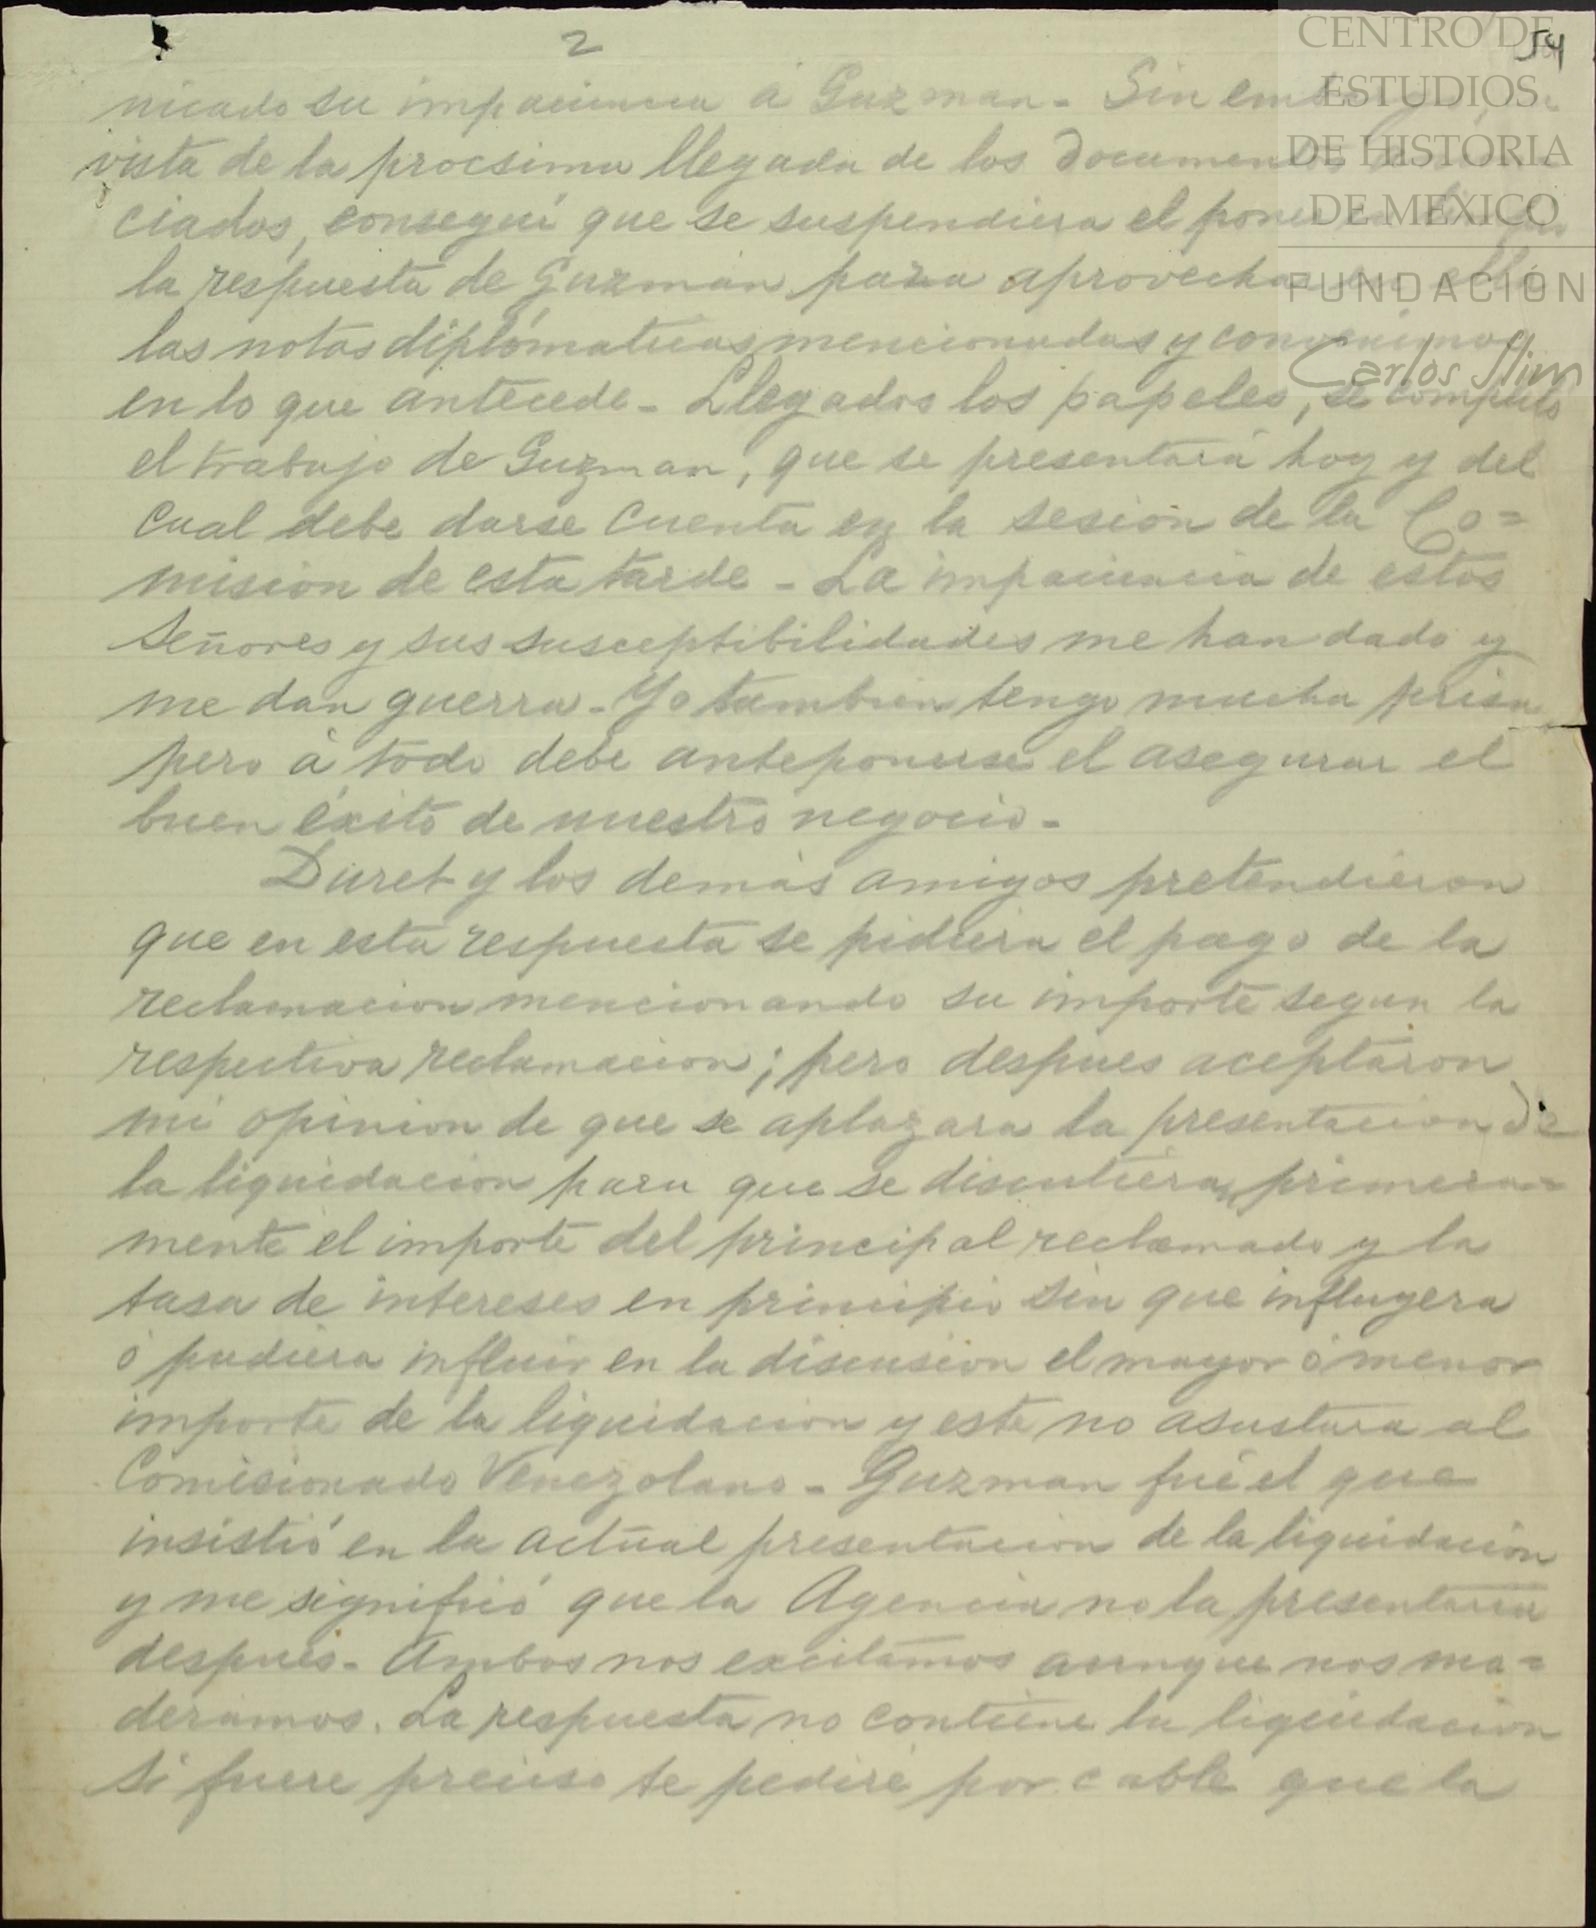 2
54
CENTRO DE
ESTUDIOS
DE HISTORIA
DE MEXICO
FUNDACIÓN
Carlos Slim
nicado su impaciencia á Guzman - Sin embargo, en
vista de la procsima llegada de los documentos anun
ciados, conseguí que se suspendiera el poner en limpio
la respuesta de Guzmán para aprovechar en ella
las notas diplómaticas mencionadas y convenimos
en lo que antecede - Llegados los papeles, se completó
el trabajo de Guzman, que se presentará hoy y del
cual debe darse cuenta en la sesión de la Co=
mision de esta tarde - La impaciencia de estos
Señores y sus susceptibilidades me han dado y
me dan guerra - Yo tambien tengo mucha prisa
pero á todo debe anteponerse el asegurar el
buen éxito de nuestro negocio -
Duret y los demás amigos pretendieron
que en esta respuesta se pidiera el pago de la
reclamacion mencionando su importe segun la
respectiva reclamacion; pero despues aceptaron
mi opinion de que se aplazara la presentacion de
la liquidacion para que se discutiera primera=
mente el importe del principal reclamado y la
tasa de intereses en principio sin que influyera
ó pudiera influir en la discusion el mayor ó menor
importe de la liquidacion y este no asustara al
Comisionado Venezolano - Guzman fué el que
insistió en la actual presentacion de la liquidación
y me significó que la Agencia no la presentaria
despues - Ambos nos excitamos aunque nos mo=
deramos. La respuesta no contiene la liquidacion
Si fuere preciso te pediré por cable que la